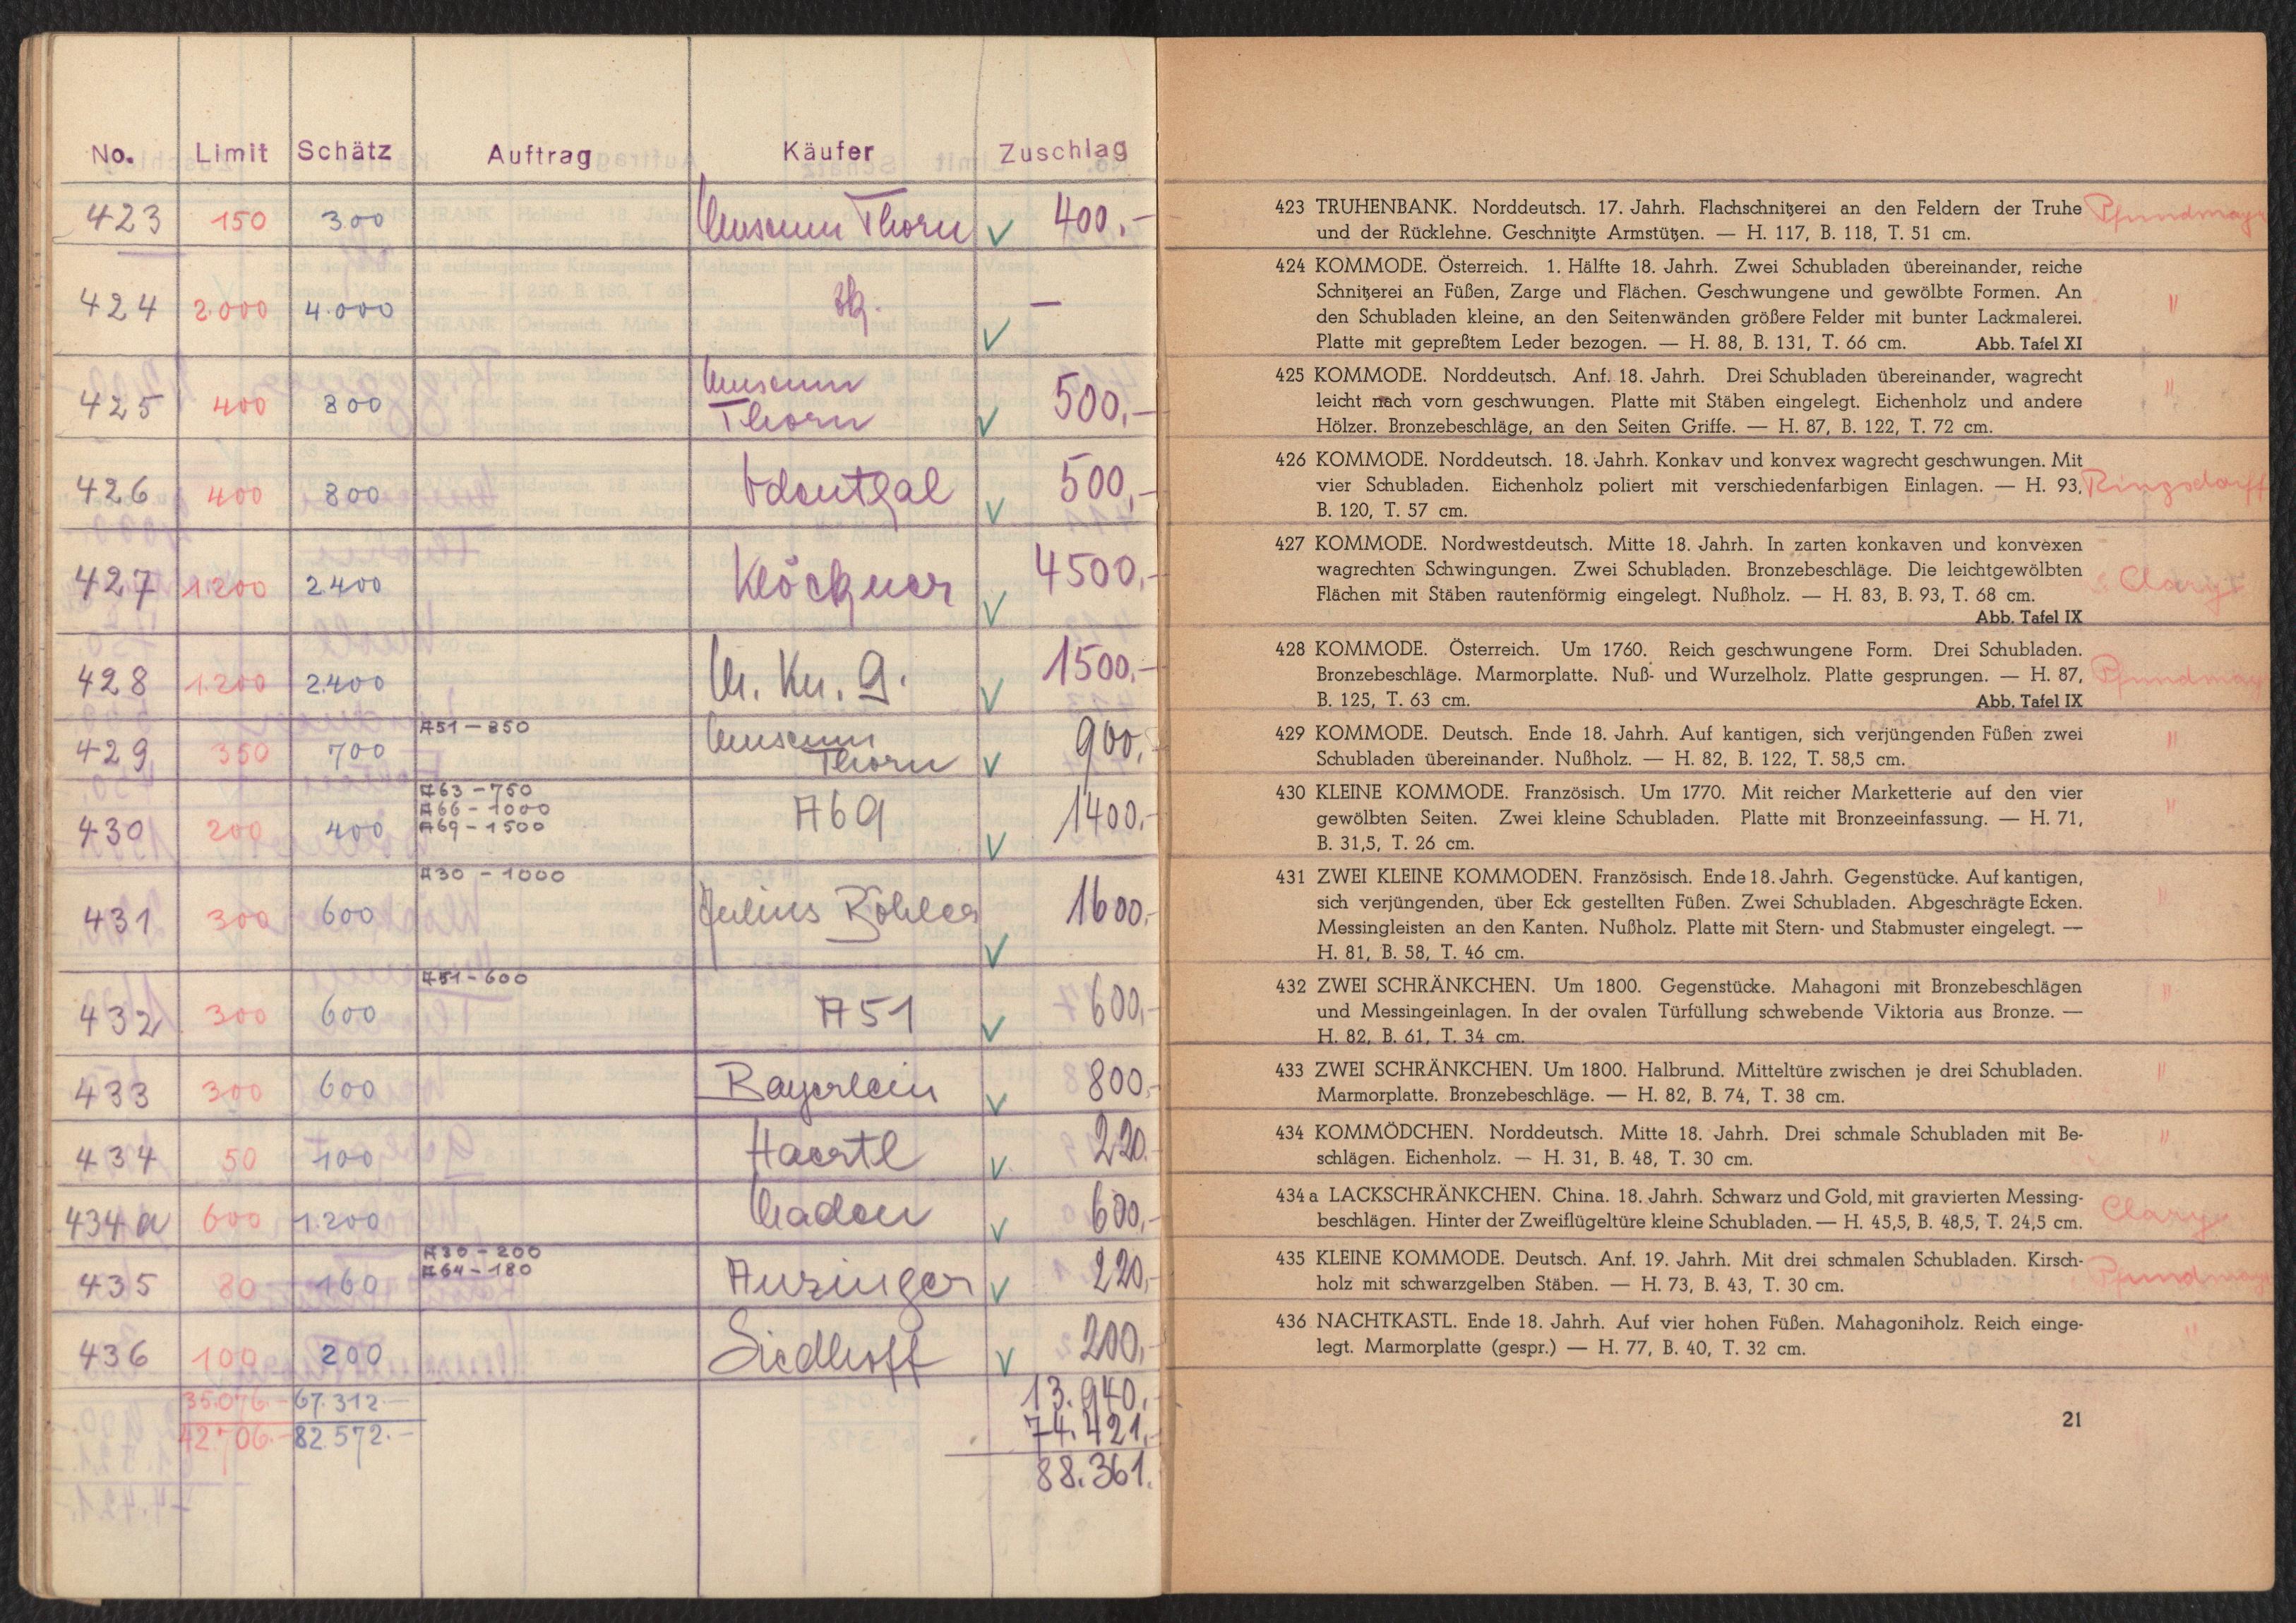 No. Limit Schätz Auftrag Käufer Zuschlag
423 150 300 Museum Thorn √ 400.-
424 2.000 4.000 √ —
425 400 800 Museum Thorn √ 500,-
426 400 800 √ 500,-
427 1.200 2400 Klöckner √ 4500,-
428 1.200 2.400 √ 1500.-
429 350 700 A51 – 850 Museum Thorn √ 900,-
430 200 400 A63 – 750
A66 – 1000
A69 – 1500 A69 √ 1400.-
431 300 600 A30 – 1000 Julius Böhler √ 1600.-
432 300 600 A51 – 600 A51 √ 600,-
433 300 600 Bayerlein √ 800.-
434 50 100 Haertl √ 220.-
434a 600 1.200 √ 600,-
435 80 160 A30 – 200
A64 – 180 Anzinger √ 220,-
436 100 200 Siedhoff √ 200,-
35.076.- 67.312.- 13.940.-
42.706.- 82.572.- 74.421.-
88.361.
423 TRUHENBANK. Norddeutsch. 17. Jahrh. Flachschnitzerei an den Feldern der Truhe Pfundmayr
und der Rücklehne. Geschnitzte Armstützen. — H. 117, B. 118, T. 51 cm.
424 KOMMODE. Österreich. 1. Hälfte 18. Jahrh. Zwei Schubladen übereinander, reiche
Schnitzerei an Füßen, Zarge und Flächen. Geschwungene und gewölbte Formen. An "
den Schubladen kleine, an den Seitenwänden größere Felder mit bunter Lackmalerei.
Platte mit gepreßtem Leder bezogen. — H. 88, B. 131, T. 66 cm. Abb. Tafel XI
425 KOMMODE. Norddeutsch. Anf. 18. Jahrh. Drei Schubladen übereinander, wagrecht "
leicht nach vorn geschwungen. Platte mit Stäben eingelegt. Eichenholz und andere
Hölzer. Bronzebeschläge, an den Seiten Griffe. — H. 87, B. 122, T. 72 cm.
426 KOMMODE. Norddeutsch. 18. Jahrh. Konkav und konvex wagrecht geschwungen. Mit
vier Schubladen. Eichenholz poliert mit verschiedenfarbigen Einlagen. — H. 93, Ringsdorff
B. 120, T. 57 cm.
427 KOMMODE. Nordwestdeutsch. Mitte 18. Jahrh. In zarten konkaven und konvexen
wagrechten Schwingungen. Zwei Schubladen. Bronzebeschläge. Die leichtgewölbten Clary
Flächen mit Stäben rautenförmig eingelegt. Nußholz. — H. 83, B. 93, T. 68 cm.
Abb. Tafel IX
428 KOMMODE. Österreich. Um 1760. Reich geschwungene Form. Drei Schubladen.
Bronzebeschläge. Marmorplatte. Nuß- und Wurzelholz. Platte gesprungen. — H. 87, Pfundmayr
B. 125, T. 63 cm. Abb. Tafel IX
429 KOMMODE. Deutsch. Ende 18. Jahrh. Auf kantigen, sich verjüngenden Füßen zwei "
Schubladen übereinander. Nußholz. — H. 82, B. 122, T. 58,5 cm.
430 KLEINE KOMMODE. Französisch. Um 1770. Mit reicher Marketterie auf den vier "
gewölbten Seiten. Zwei kleine Schubladen. Platte mit Bronzeeinfassung. — H. 71,
B. 31,5, T. 26 cm.
431 ZWEI KLEINE KOMMODEN. Französisch. Ende 18. Jahrh. Gegenstücke. Auf kantigen, "
sich verjüngenden, über Eck gestellten Füßen. Zwei Schubladen. Abgeschrägte Ecken.
Messingleisten an den Kanten. Nußholz. Platte mit Stern- und Stabmuster eingelegt. —
H. 81, B. 58, T. 46 cm.
432 ZWEI SCHRÄNKCHEN. Um 1800. Gegenstücke. Mahagoni mit Bronzebeschlägen "
und Messingeinlagen. In der ovalen Türfüllung schwebende Viktoria aus Bronze. —
H. 82, B. 61, T. 34 cm.
433 ZWEI SCHRÄNKCHEN. Um 1800. Halbrund. Mitteltüre zwischen je drei Schubladen. "
Marmorplatte. Bronzebeschläge. — H. 82, B. 74, T. 38 cm.
434 KOMMÖDCHEN. Norddeutsch. Mitte 18. Jahrh. Drei schmale Schubladen mit Be- "
schlägen. Eichenholz. — H. 31, B. 48, T. 30 cm.
434 a LACKSCHRÄNKCHEN. China. 18. Jahrh. Schwarz und Gold, mit gravierten Messing- Clary
beschlägen. Hinter der Zweiflügeltüre kleine Schubladen. — H. 45,5, B. 48,5, T. 24,5 cm.
435 KLEINE KOMMODE. Deutsch. Anf. 19. Jahrh. Mit drei schmalen Schubladen. Kirsch- Pfundmayr
holz mit schwarzgelben Stäben. — H. 73, B. 43, T. 30 cm.
436 NACHTKASTL. Ende 18. Jahrh. Auf vier hohen Füßen. Mahagoniholz. Reich einge- "
legt. Marmorplatte (gespr.) — H. 77, B. 40, T. 32 cm.
21